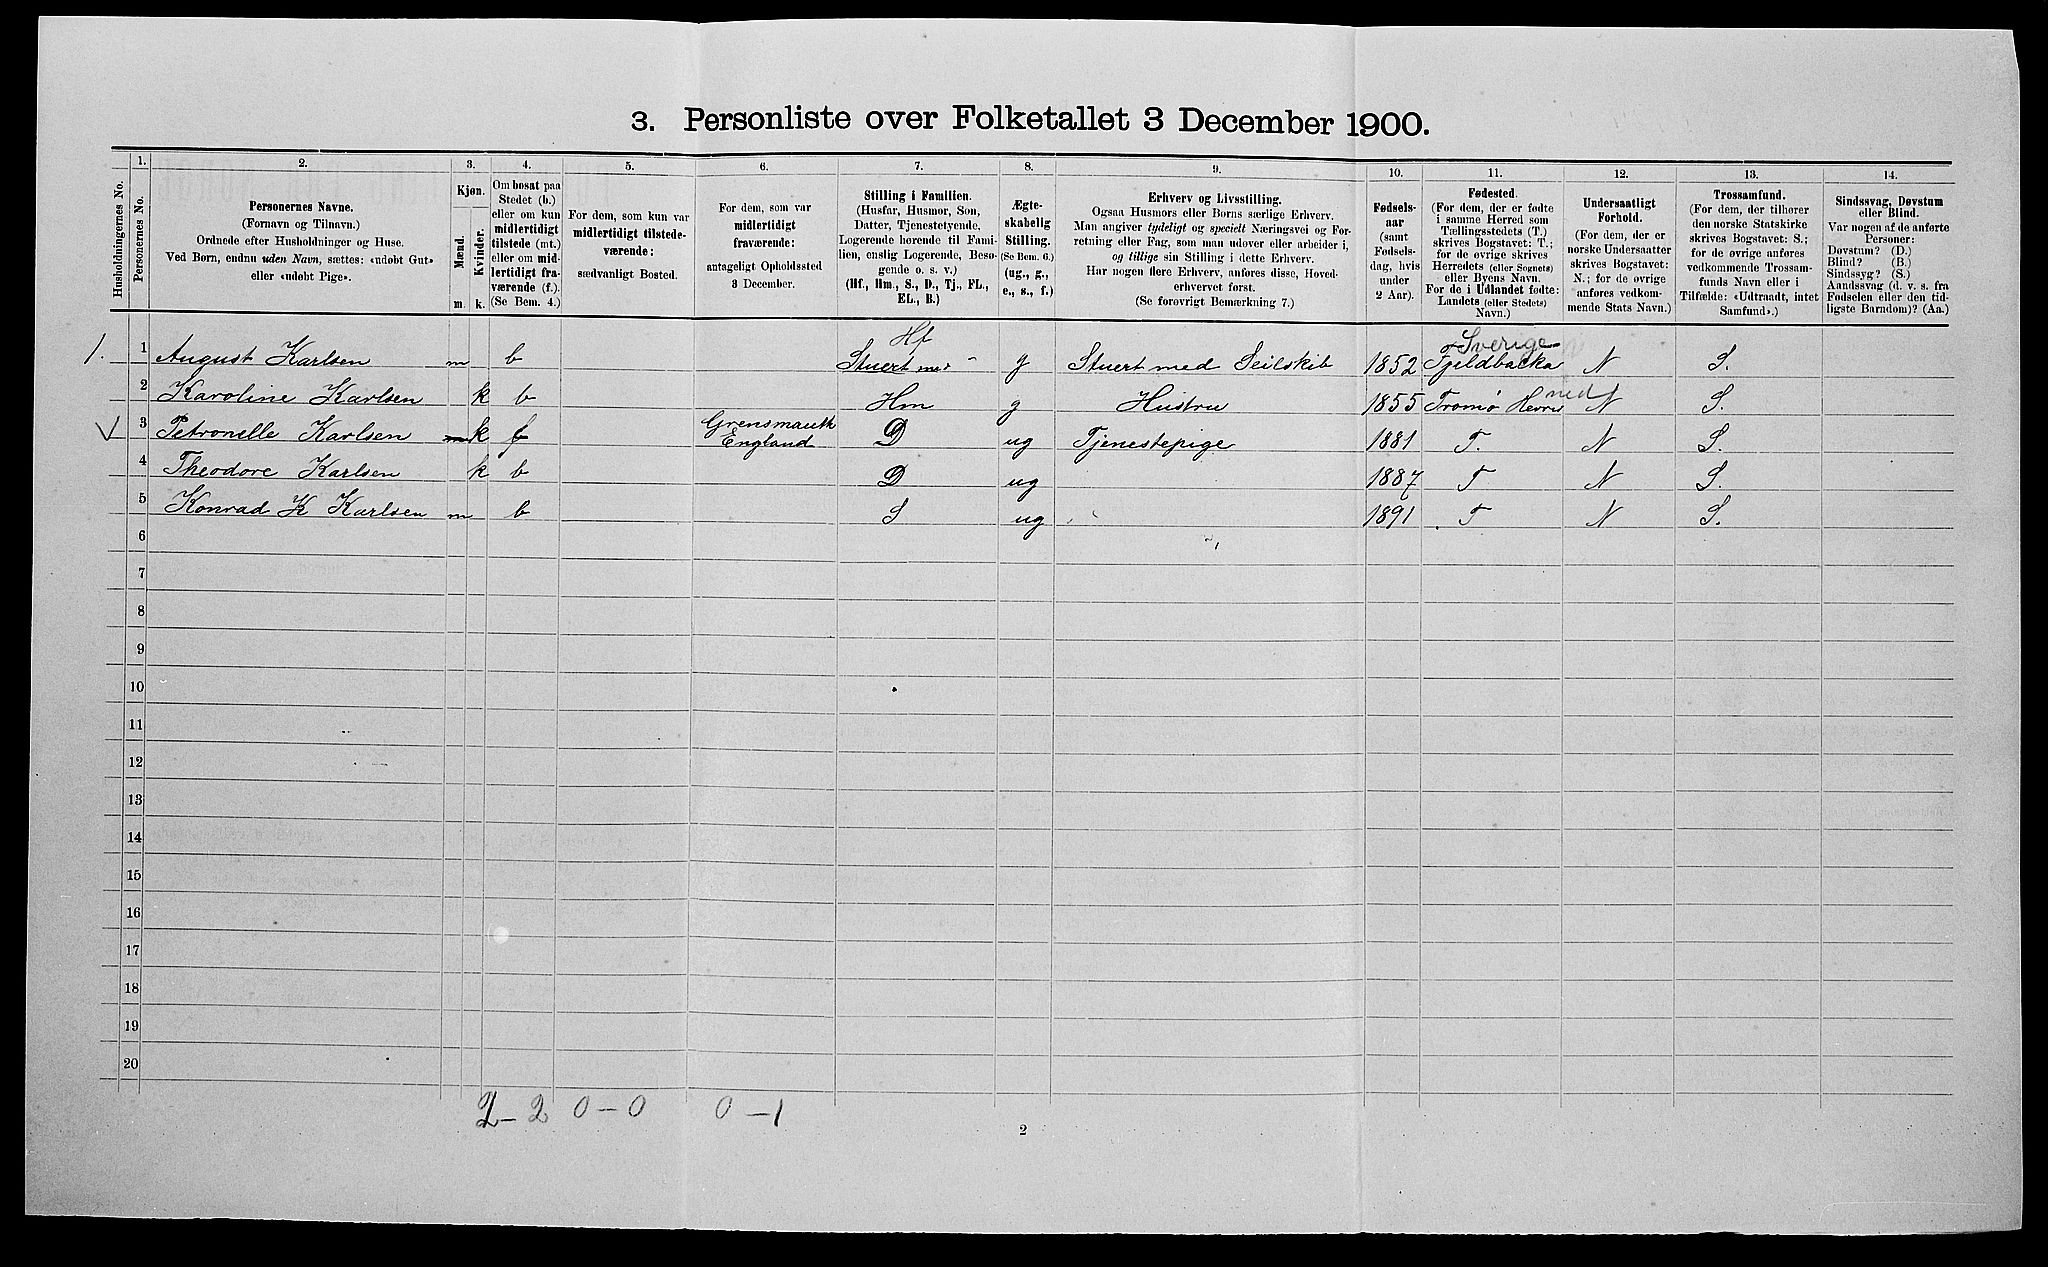 3. Personliste over Folketallet 3 December 1900.
Husholdningernes No.
1. Personernes No.
2.
Personernes Navne.
(Fornavn og Tilnavn.)
Ordnede efter Husholdninger og Huse.
Ved Børn, endnu uden Navn, sættes: «udøbt Gut»
eller «udøbt Pige».
3.
Kjøn.
Mænd.
Kvinder.
m. k.
4.
Om bosat paa
Stedet (b.)
eller om kun
midlertidigt
tilstede (mt.)
eller om mid-
lertidigt fra-
værende (f.).
(Se Bem. 4.)
5.
For dem, som kun var
midlertidigt tilstede-
værende:
sædvanligt Bosted.
6.
For dem, som var
midlertidigt
fraværende:
antageligt Opholdssted
3 December.
7.
Stilling i Familien.
(Husfar, Husmor, Søn,
Datter, Tjenestetyende,
Logerende hørende til Fami-
lien, enslig Logerende, Besø-
gende o. s. v.)
(Hf., Hm., S., D., Tj., FL.,
EL., B.)
8.
Ægte-
skabelig
Stilling.
(Se Bem. 6.)
(ug., g.,
e., s., f.)
9.
Erhverv og Livsstilling.
Ogsaa Husmors eller Børns særlige Erhverv.
Man angiver tydeligt og specielt Næringsvei og For-
retning eller Fag, som man udover eller arbeider i,
og tillige sin Stilling i dette Erhverv.
Har nogen flere Erhverv, anføres disse, Hoved-
erhvervet først.
(Se forøvrigt Bemærkning 7.)
10.
Fødsels-
aar
(samt
Fødsels-
dag, hvis
under
2 Aar).
11.
Fødested.
(For dem, der er fødte
i samme Herred som
Tællingsstedets (T.)
skrives Bogstavet: T.;
for de øvrige skrives
Herredets (eller Sognets)
eller Byens Navn.
For de i Udlandet fødte:
Landets (eller Stedets)
Navn.)
12.
Undersaatligt
Forhold.
(For dem, der er
norske Undersaatter
skrives Bogstavet:
N.; for de øvrige
anføres vedkom-
mende Stats Navn.)
13.
Trossamfund.
(For dem, der tilhører
den norske Statskirke
skrives Bogstavet: S.;
for de øvrige anføres
vedkommende Trossam-
funds Navn eller i
Tilfælde: «Udtraadt, intet
Samfund».)
14.
Sindssvag, Døvstum
eller Blind.
Var nogen af de anførte
Personer:
Døvstum? (D.)
Blind? (B.)
Sindssyg? (S.)
Aandssvag (d. v. s. fra
Fødselen eller den tid-
ligste Barndom)? (Aa.)
Hf Sverige
1. 1 August Karlsen m b Stuert g Stuert med Seilskib 1852 Fjeldbacka N S.
2 Karoline Karlsen k b Hm g Hustru 1855 Tromø Herred N S.
3 Petronelle Karlsen k f Grensmauth England D ug Tjenestepige 1881 T. N S.
4 Theodore Karlsen k b D ug 1887 T N S.
5 Konrad K Karlsen m b S ug 1891 T N S.
6
7
8
9
10
11
12
13
14
15
16
17
18
19
20
2 – 2 0 – 0 0 – 1
2